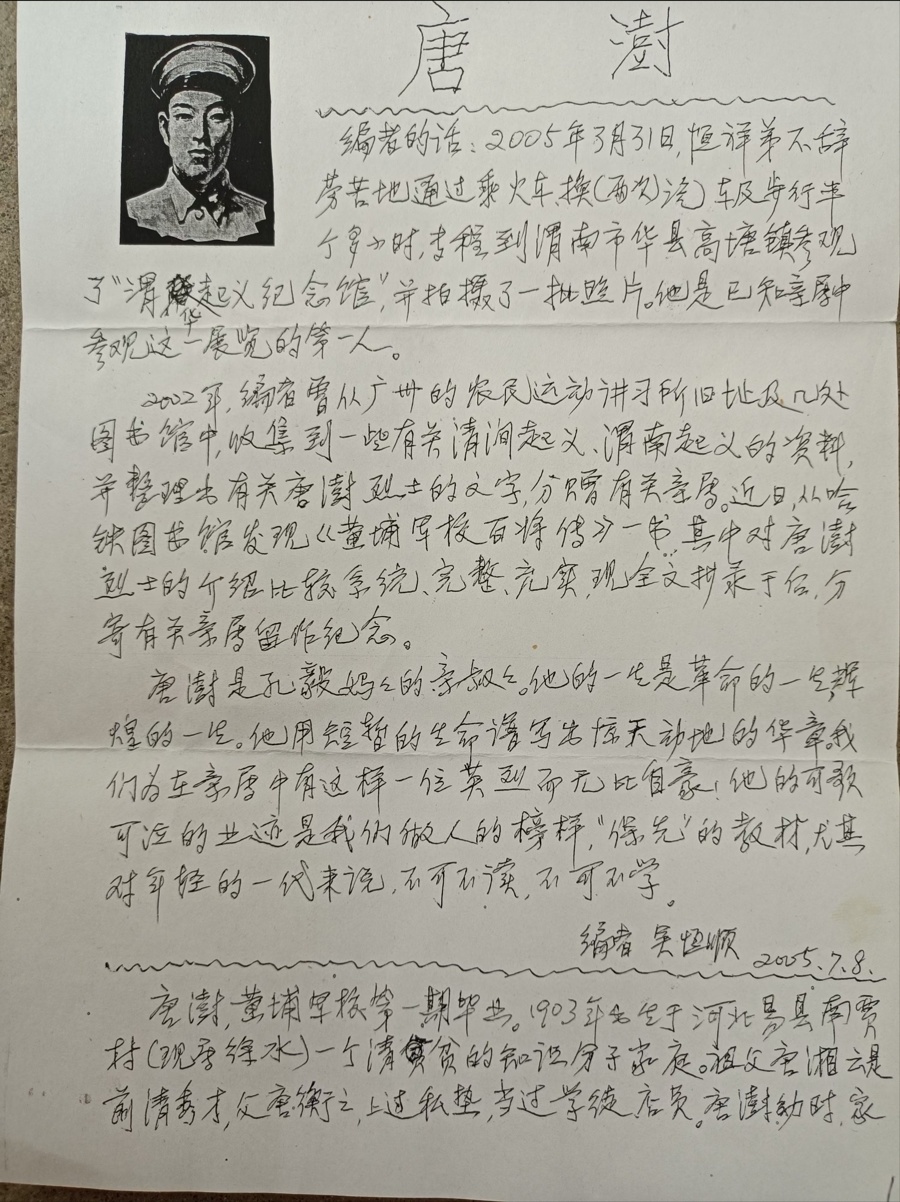 唐 澍
编者的话：2005年3月31日，恒祥弟不辞
劳苦地通过乘火车、换（两次汽）车及步行半
个多小时，专程到渭南市华县高塘镇参观
了“渭华起义纪念馆”，并拍摄了一批照片。他是已知亲属中
参观这一展览的第一人。
2002年，编者曾从广州的农民运动讲习所旧址及几处
图书馆中，收集到一些有关清涧起义、渭南起义的资料，
并整理出有关唐澍烈士的文字，分赠有关亲属。近日，从哈
铁图书馆发现《黄埔军校百将传》一书，其中对唐澍
烈士的介绍比较系统、完整、充实，现全文抄录于后，分
寄有关亲属留作纪念。
唐澍是孔毅妈妈的亲叔叔。他的一生是革命的一生，辉
煌的一生。他用短暂的生命谱写出惊天动地的华章。我
们为在亲属中有这样一位英烈而无比自豪！他的可歌
可泣的业迹是我们做人的榜样，“保先”的教材，尤其
对年轻的一代来说，不可不读，不可不学。
编者 吴恒顺 2005.7.8.
唐澍，黄埔军校第一期毕业。1903年出生于河北易县南贾
村（现属徐水）一个清贫的知识分子家庭。祖父唐湘云是
前清秀才，父唐衡之，上过私塾，当过学徒、店员。唐澍幼时，家
1